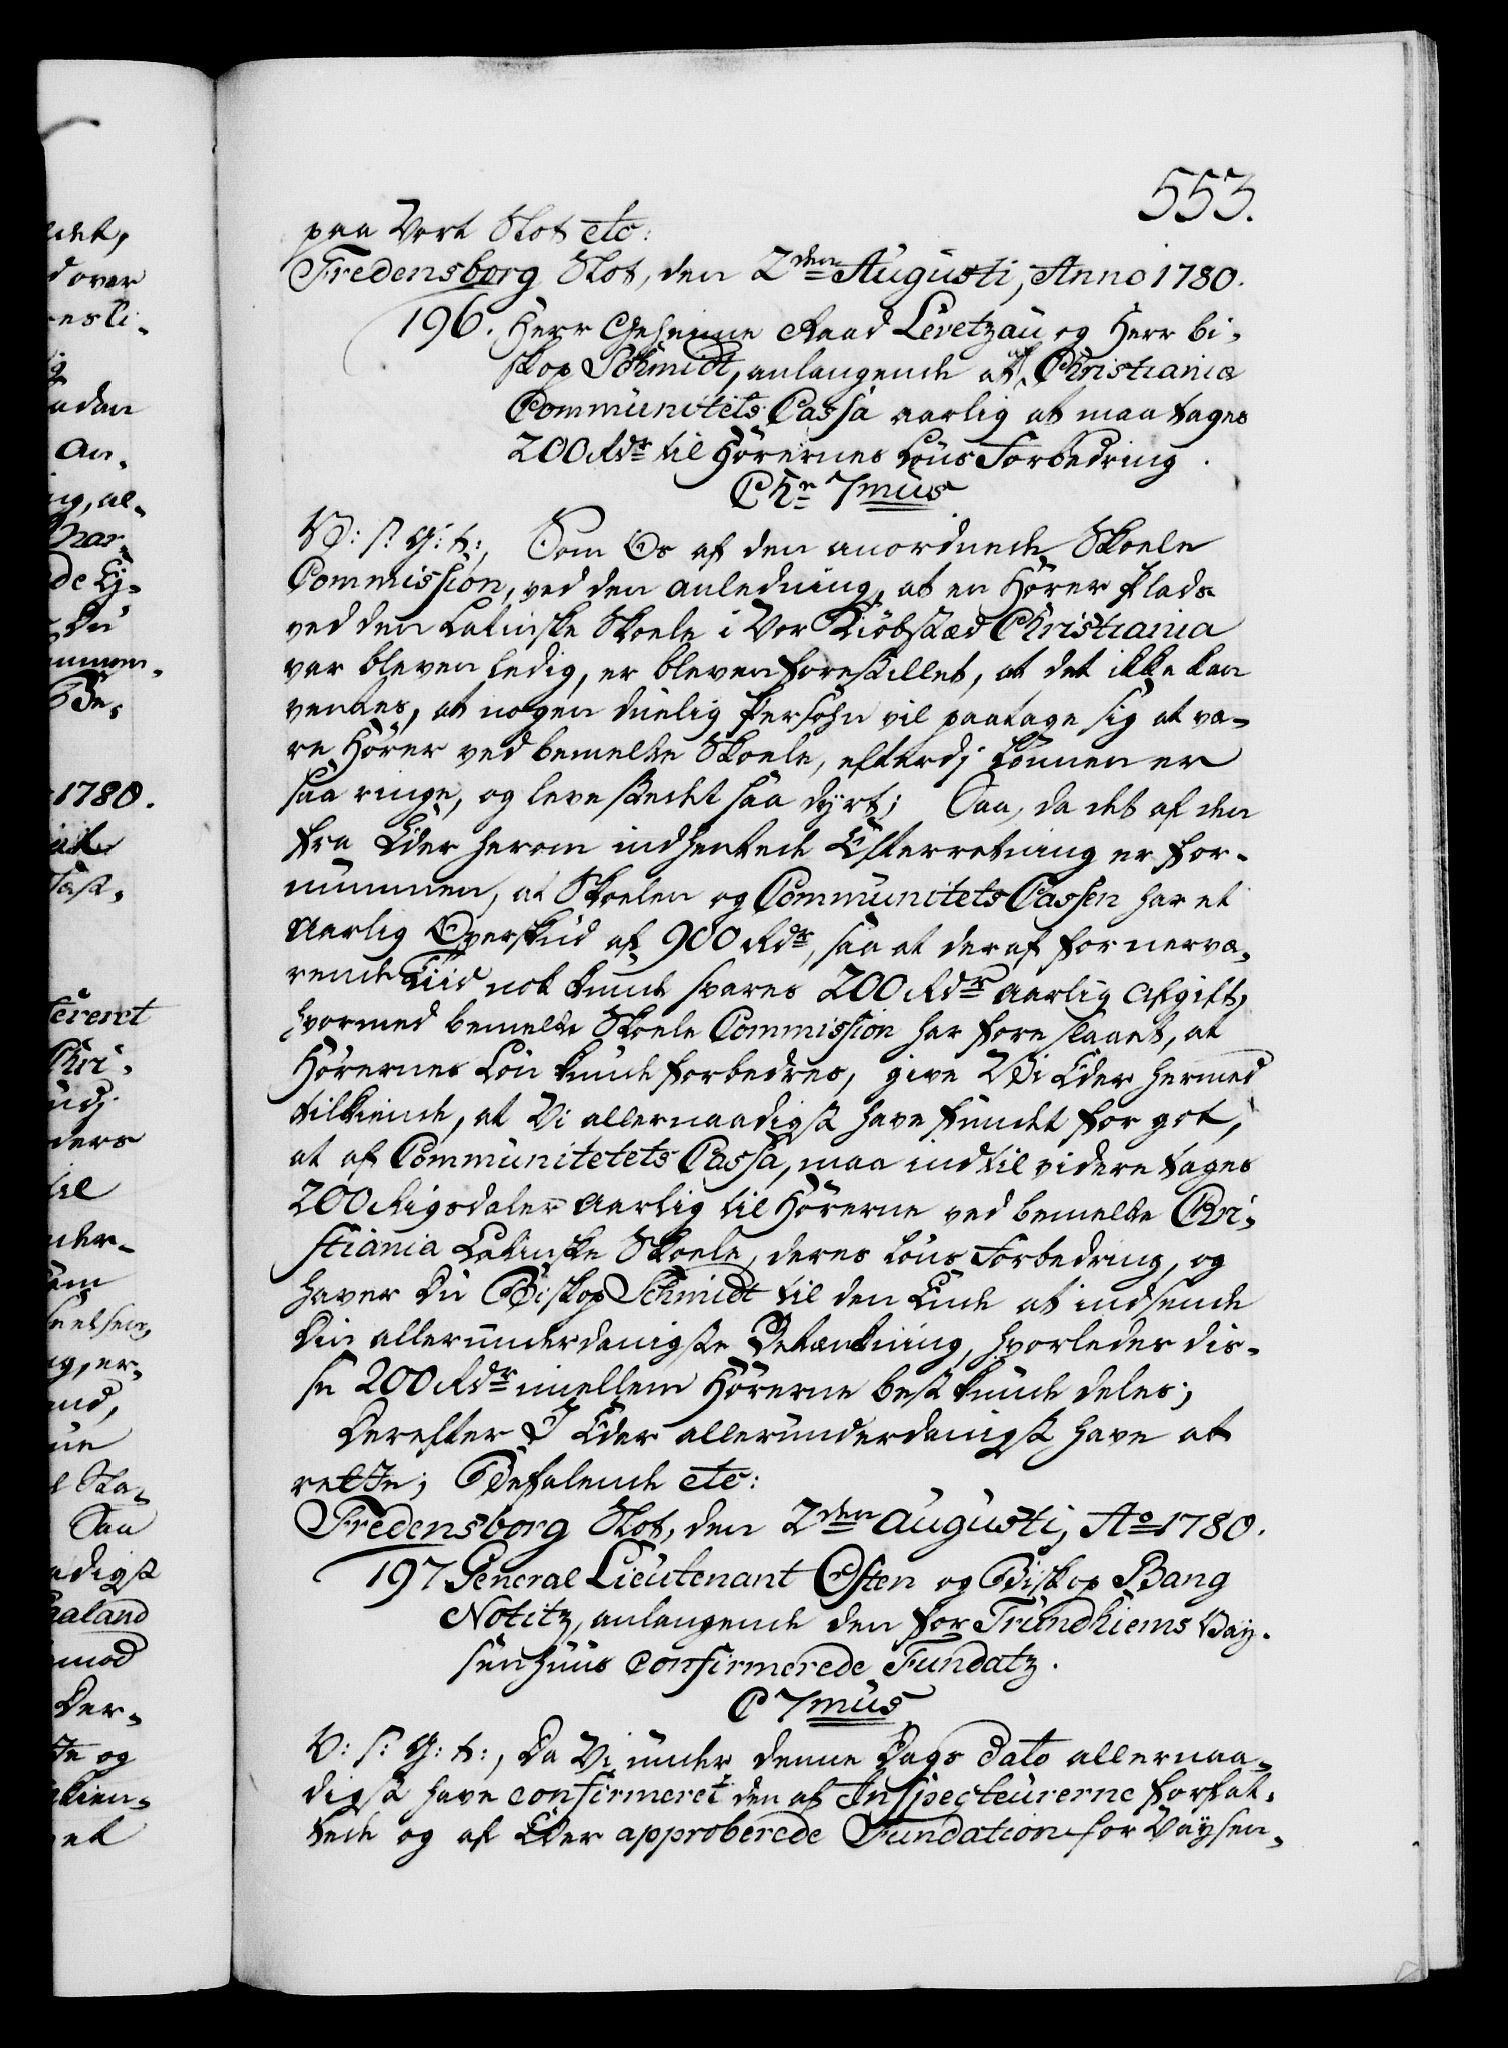 553.
paa Vort Slot etc:
Fredensborg Slot, den 2den Augusti, Anno 1780.
196. Herr Geheime Raad Levetzau og Herr Bi-
skop Schmidt, anlangende at af Christiania
Communitets Cassa aarlig at maa tages
200 Rdr til Hörernes Löns Forbedring.
Chr 7mus
V: s: G: t:, Som Os af den anordnede Skoele
Commission, ved den anledning, at en Hörer Plads
ved den Latinske Skoele i Vor Kiöbstæd Christiania
var bleven ledig, er bleven forestillet, at det ikke kan
ventes, at nogen duelig Persohn vil paatage sig at væ-
re Hörer ved bemelte Skoele, efterdj Lönnen er
saa ringe, og levestædet saa dyrt; Saa, da det af den
fra Eder herom indhentede Efterretning er for-
nummen, at Skoelen og Communitets Cassen har et
Aarlig Overskud af 900 Rdr, saa at deraf for nervæ-
rende Tiid nok kunde svares 200 Rdr aarlig Afgift,
hvormed bemelte Skoele Commission har foreslaaet, at
Hörernes Lön kunde forbedres, give Vi Eder hermed
tilkiende, at Vi allernaadigst have fundet for got,
at af Communitetets Cassa, maa indtil videre tages
200 Rigsdaler aarlig til Hörerne ved bemelte Chri-
stiania Latinske Skoele, deres Löns Forbedring, og
haver Du Biskop Schmidt til den Ende at indsende
Din allerunderdanigste Betænkning, hvorledes dis-
se 200 Rdr imellem Hörerne best kunde deles;
Derefter I Eder allerunderdanigst have at
rette; Befalende etc:
Fredensborg Slot, den 2den Augusti, Ao 1780.
197 General Lieutenant Osten og Biskop Bang
Notitz, anlangende den for Trundhiems Vay-
senhuus confirmerede Fundatz.
C 7mus
V: s: G: t:, Da Vi under denne Dags Dato allernaa-
digst have confirmeret den af Inspecteurerne forfat-
tede og af Eder approberede Fundation for Vaysen-